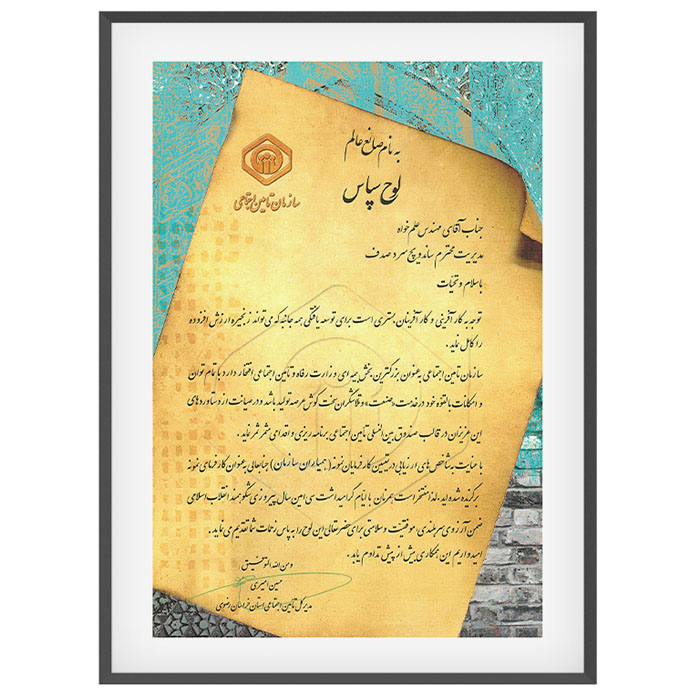 به نام صانع عالم
لوح سپاس
سازمان تامین اجتماعی
جناب آقای مهندس علم خواه
مدیریت محترم ساندویچ سرد صدف
با سلام و تحیات
توجه به کارآفرینی و کارآفرینان بستری است برای توسعه یافتگی همه جانبه که می تواند زنجیره ارزش افزوده
را کامل نماید .
سازمان تامین اجتماعی به عنوان بزرگترین بخش بیمه ای وزارت رفاه و تامین اجتماعی افتخار دارد با تمام توان
و امکانات بالقوه خود در خدمت «صنعت» و تلاشگران سخت کوش عرصه تولید باشد و در صیانت از دستاوردهای
این عزیزان در قالب صندوق بین النسلی تامین اجتماعی برنامه ریزی و اقدامی مثمر ثمر نماید .
با عنایت به شاخص های ارزیابی در تعیین کارفرمایان نمونه (همیاران سازمان) جنابعالی به عنوان کارفرمای نمونه
برگزیده شده اید. لذا مفتخر است همزمان با ایام گرامیداشت سی امین سال پیروزی شکوهمند انقلاب اسلامی
ضمن آرزوی سربلندی، موفقیت و سلامتی برای حضرتعالی این لوح را به پاس زحمات شما تقدیم می نماید .
امیدواریم این همکاری بیش از پیش تداوم یابد .
و من الله التوفیق
حسین امیری
مدیر کل تامین اجتماعی استان خراسان رضوی